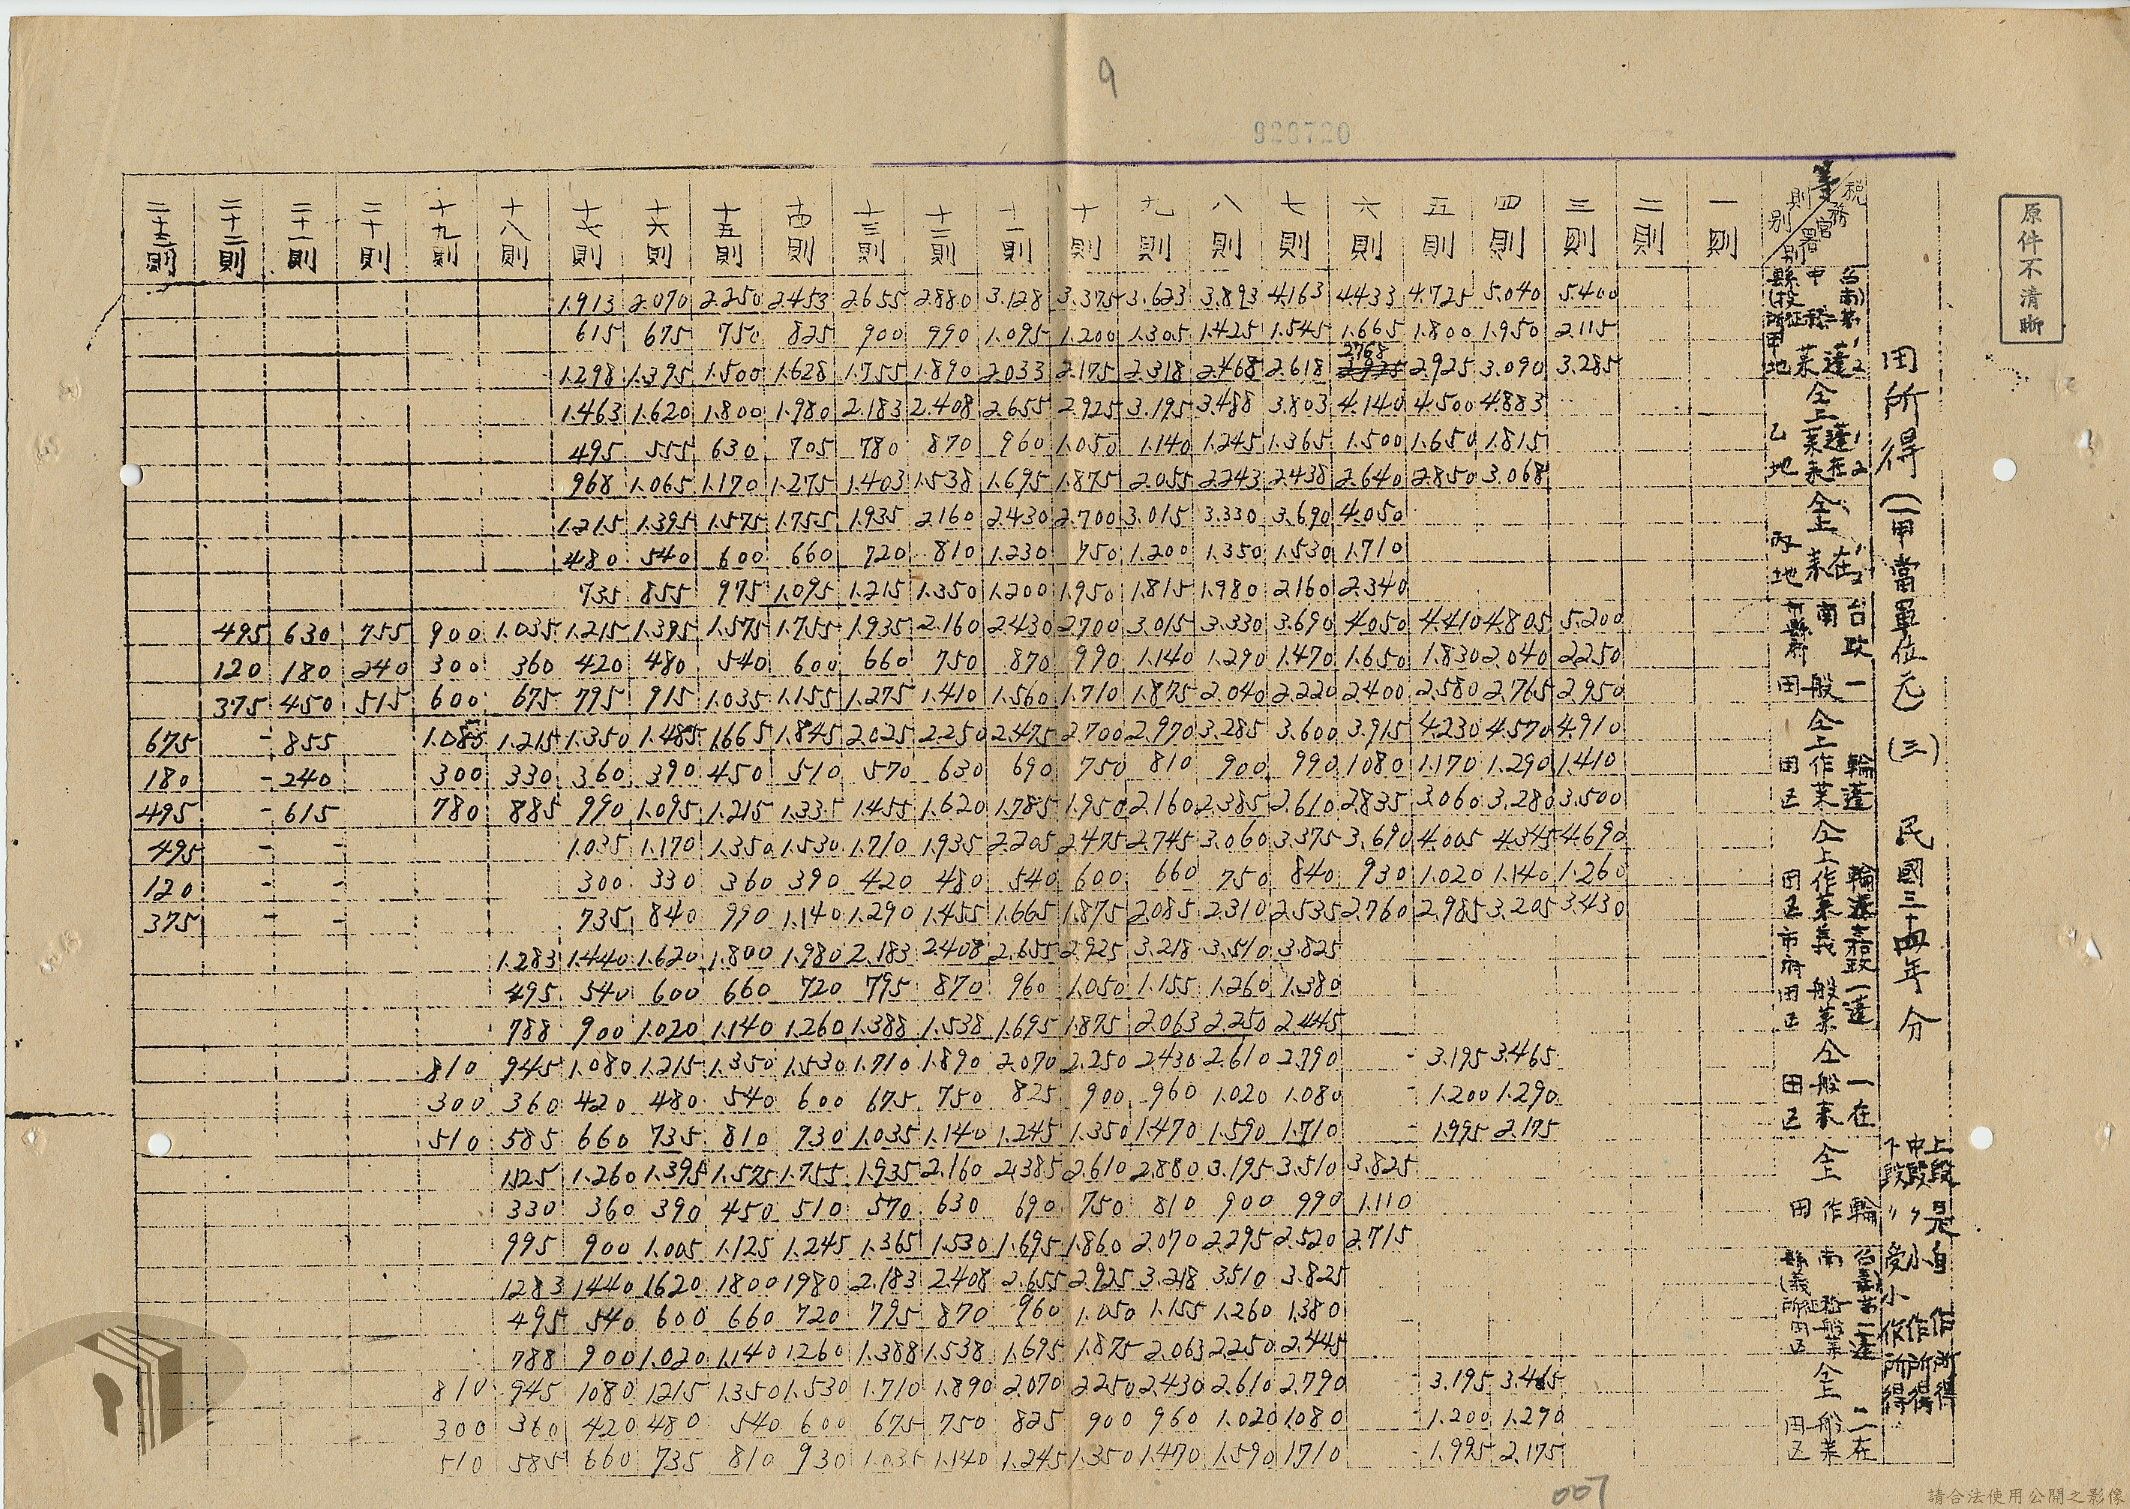 9
920720
原件不清晰
田所得(一甲當單位元)(三) 民國三十四年分
上段是自作所得
中段〃小作所得
下段〃受小作所得
二十三則 二十二則 二十一則 二十則 十九則 十八則 十七則 十六則 十五則 十四則 十三則 十二則 十一則 十則 九則 八則 七則 六則 五則 四則 三則 二則 一則
1.913 2.070 2.250 2.453 2.655 2.880 3.128 3.375 3.623 3.893 4.163 4.433 4.725 5.040 5.400
615 675 750 825 900 990 1.095 1.200 1.305 1.425 1.545 1.665 1.800 1.950 2.115
1.298 1.395 1.500 1.628 1.755 1.890 2.033 2.175 2.318 2.468 2.618 2768 2.925 3.090 3.285
1.463 1.620 1.800 1.980 2.183 2.408 2.655 2.925 3.195 3.488 3.803 4.140 4.500 4.883
495 555 630 705 780 870 960 1.050 1.140 1.245 1.365 1.500 1.650 1.815
968 1.065 1.170 1.275 1.403 1.538 1.695 1.875 2.055 2.243 2.438 2.640 2.850 3.068
1.215 1.395 1.575 1.755 1.935 2.160 2.430 2.700 3.015 3.330 3.690 4.050
480 540 600 660 720 810 1.230 750 1.200 1.350 1.530 1.710
735 855 975 1.095 1.215 1.350 1.200 1.950 1.815 1.980 2.160 2.340
495 630 755 900 1.035 1.215 1.395 1.575 1.755 1.935 2.160 2.430 2.700 3.015 3.330 3.690 4.050 4.410 4.805 5.200
120 180 240 300 360 420 480 540 600 660 750 870 990 1.140 1.290 1.470 1.650 1.830 2.040 2.250
375 450 515 600 675 795 915 1.035 1.155 1.275 1.410 1.560 1.710 1.875 2.040 2.220 2.400 2.580 2.765 2.950
675 - 855 1.085 1.215 1.350 1.485 1.665 1.845 2.025 2.250 2.475 2.700 2.970 3.285 3.600 3.915 4.230 4.570 4.910
180 - 240 300 330 360 390 450 510 570 630 690 750 810 900 990 1.080 1.170 1.290 1.410
495 - 615 780 885 990 1.095 1.215 1.335 1.455 1.620 1.785 1.950 2.160 2.385 2.610 2.835 3.060 3.280 3.500
495 - - 1.035 1.170 1.350 1.530 1.710 1.935 2.205 2.475 2.745 3.060 3.375 3.690 4.005 4.345 4.690
120 - - 300 330 360 390 420 480 540 600 660 750 840 930 1.020 1.140 1.260
375 - - 735 840 990 1.140 1.290 1.455 1.665 1.875 2.085 2.310 2.535 2.760 2.985 3.205 3.430
1.283 1.440 1.620 1.800 1.980 2.183 2.408 2.655 2.925 3.218 3.510 3.825
495 540 600 660 720 795 870 960 1.050 1.155 1.260 1.380
788 900 1.020 1.140 1.260 1.388 1.538 1.695 1.875 2.063 2.250 2.445
810 945 1.080 1.215 1.350 1.530 1.710 1.890 2.070 2.250 2.430 2.610 2.790 - 3.195 3.465
300 360 420 480 540 600 675 750 825 900 960 1.020 1.080 - 1.200 1.290
510 585 660 735 810 930 1.035 1.140 1.245 1.350 1.470 1.590 1.710 - 1.995 2.175
1.125 1.260 1.395 1.575 1.755 1.935 2.160 2.385 2.610 2.880 3.195 3.510 3.825
330 360 390 450 510 570 630 690 750 810 900 990 1.110
995 900 1.005 1.125 1.245 1.365 1.530 1.695 1.860 2.070 2.295 2.520 2.715
1283 1440 1620 1800 1980 2.183 2.408 2.655 2.925 3.218 3.510 3.825
495 540 600 660 720 795 870 960 1.050 1.155 1.260 1.380
788 900 1.020 1.140 1260 1.388 1.538 1.695 1.875 2.063 2.250 2.445
810 945 1080 1215 1350 1.530 1.710 1.890 2.070 2.250 2.430 2.610 2.790 - 3.195 3.465
300 360 420 480 540 600 675 750 825 900 960 1.020 1080 - 1.200 1.290
510 585 660 735 810 930 1.035 1.140 1.245 1.350 1.470 1.590 1710 - 1.995 2.175
007
請合法使用公開之影像